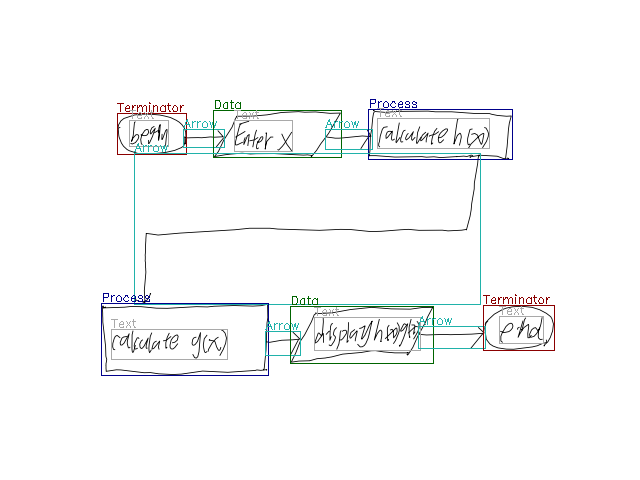 Terminator
Text
begin
Arrow
Arrow
Data
Text
Enter x
Arrow
Process
Text
calculate h(x)
Process
Text
calculate g(x)
Arrow
Data
Text
display
Arrow
Terminator
Text
end